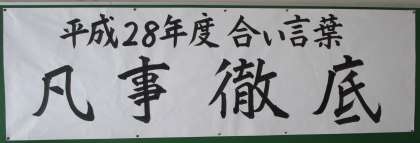 平成28年度 合い言葉
凡事徹底